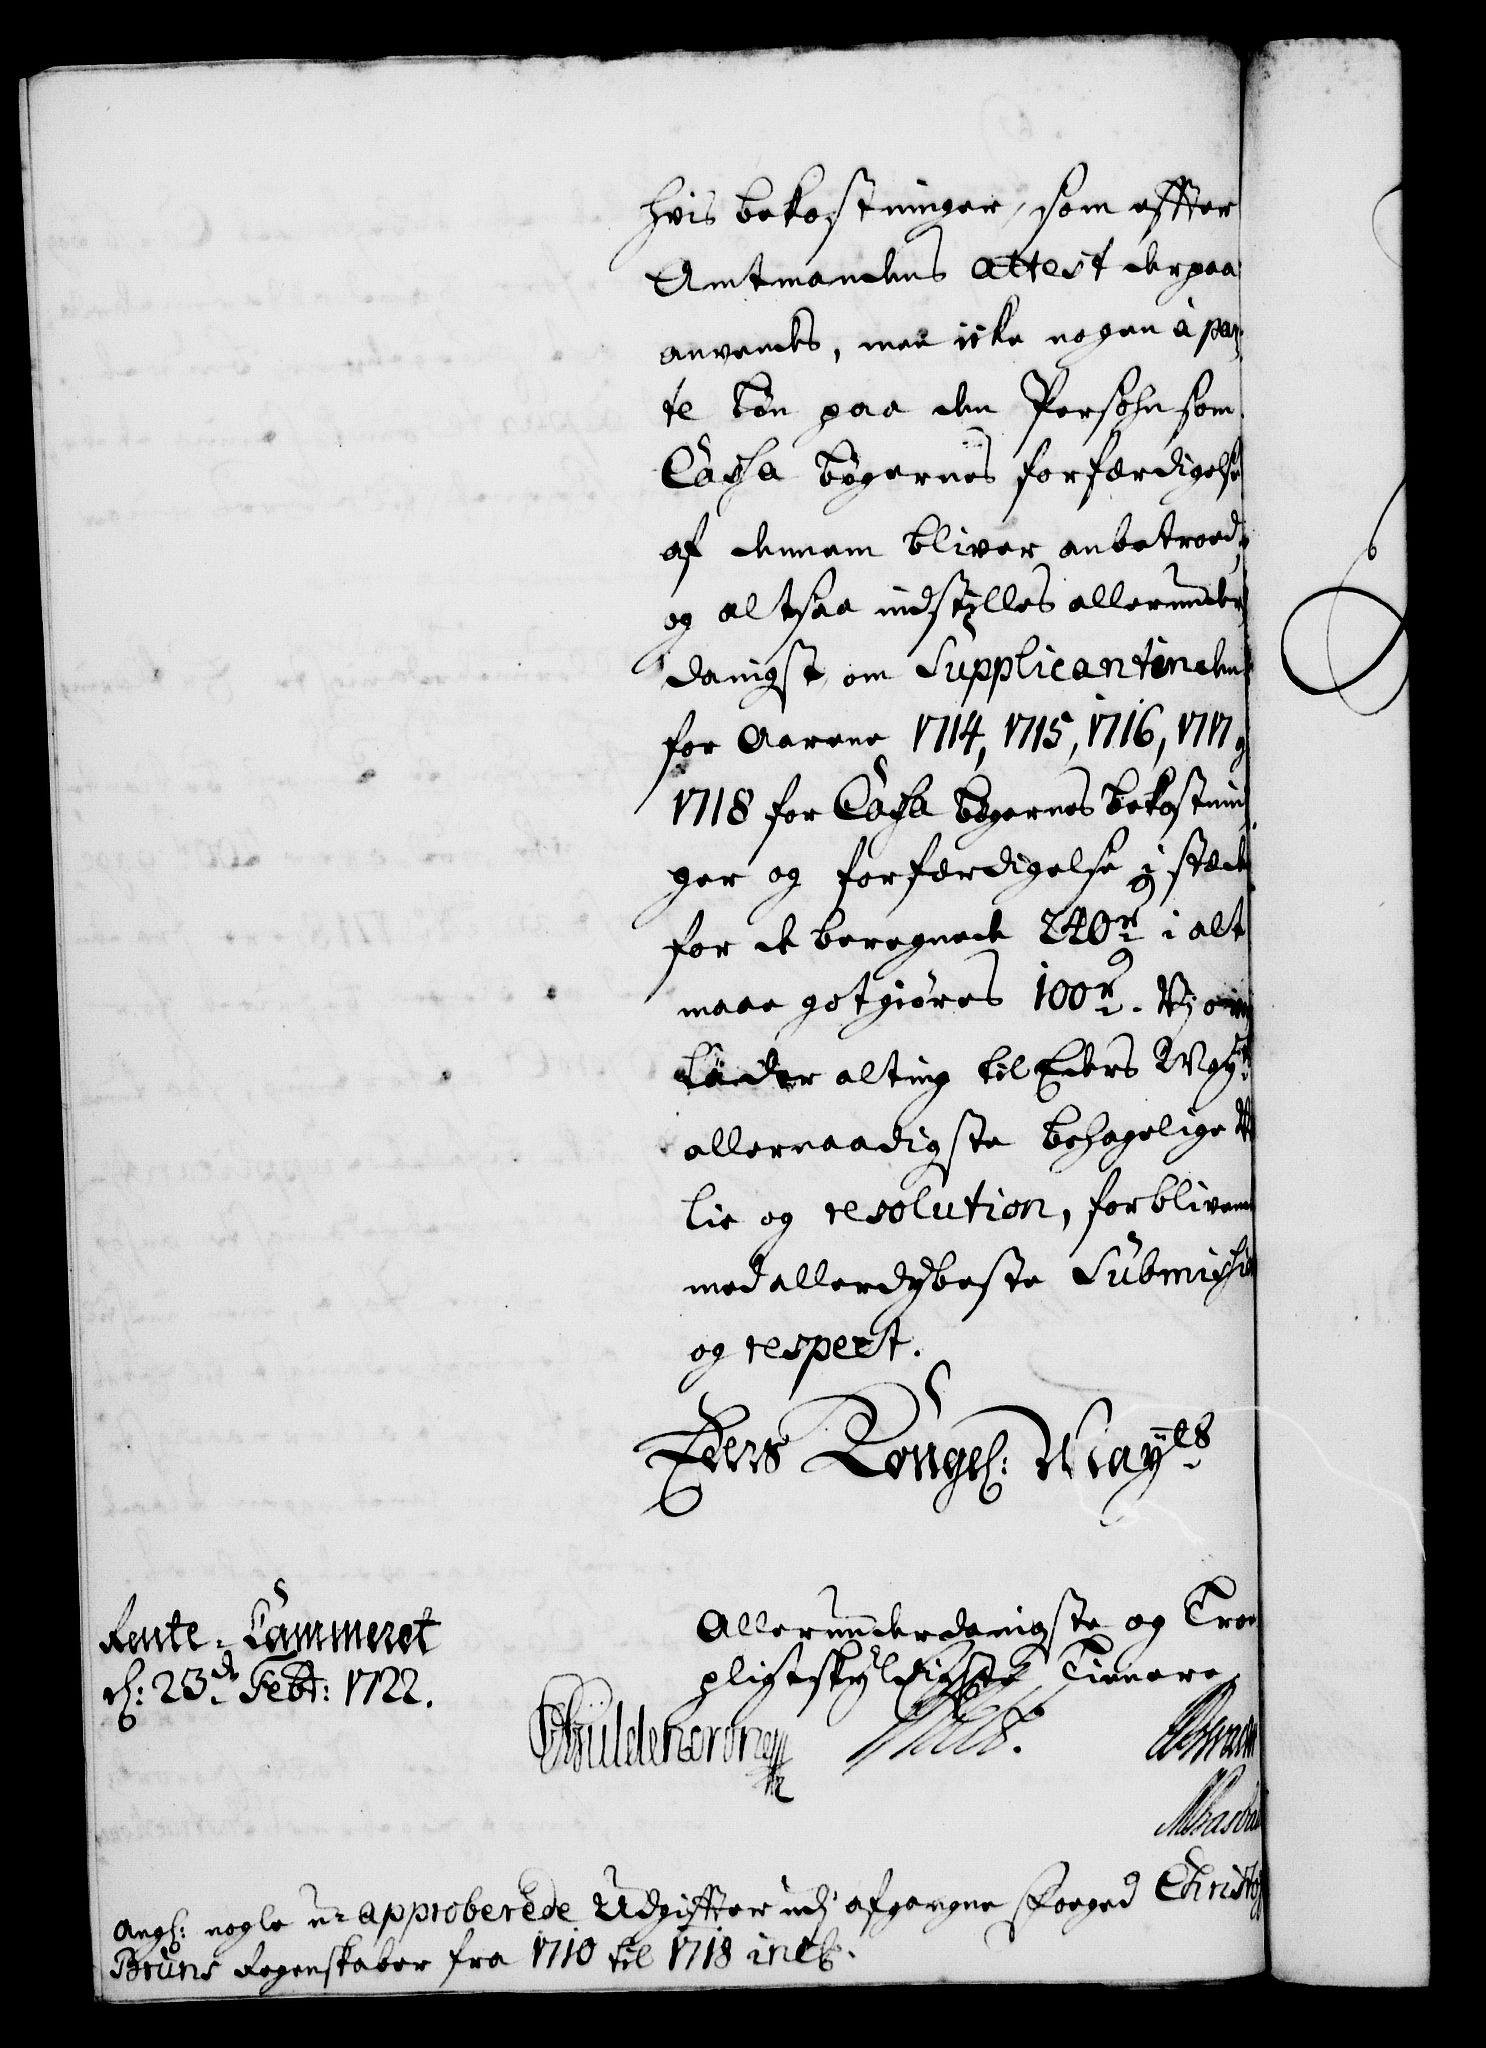 hvis bekostninger, som effter
Amtmandens attest derpaa
anvendes, men icke nogen à par-
te Løn paa den Persohn som
Cassa bøgernes forfærdigelse
af dennem bliver anbetroed,
og altsaa indstilles allerunder
danigst, om Supplicantinden
for Aarene 1714, 1715, 1716, 1717 og
1718 for Cassa bøgernes bekostnin
ger og forfærdigelse i stæden
for de beregnede 240 r i alt
maae gotgiøres 100 r. Vj
lader alting til Eders Mayts
allernaadigste behagelige Vi
lie og resolution, forblivende
med allerdybeste Submission
og respect.
Eders Kongel: Mayts
Allerunderdanigste og Troe
pligtskyldigste Tienere
Rente-Cammeret
d: 23de Febr: 1722.
CGüldencrone
Angl: nogle u-approberede Udgiffter udj afgangne Foged Christoph
Bruns Regenskaber fra 1710 til 1718 incl.